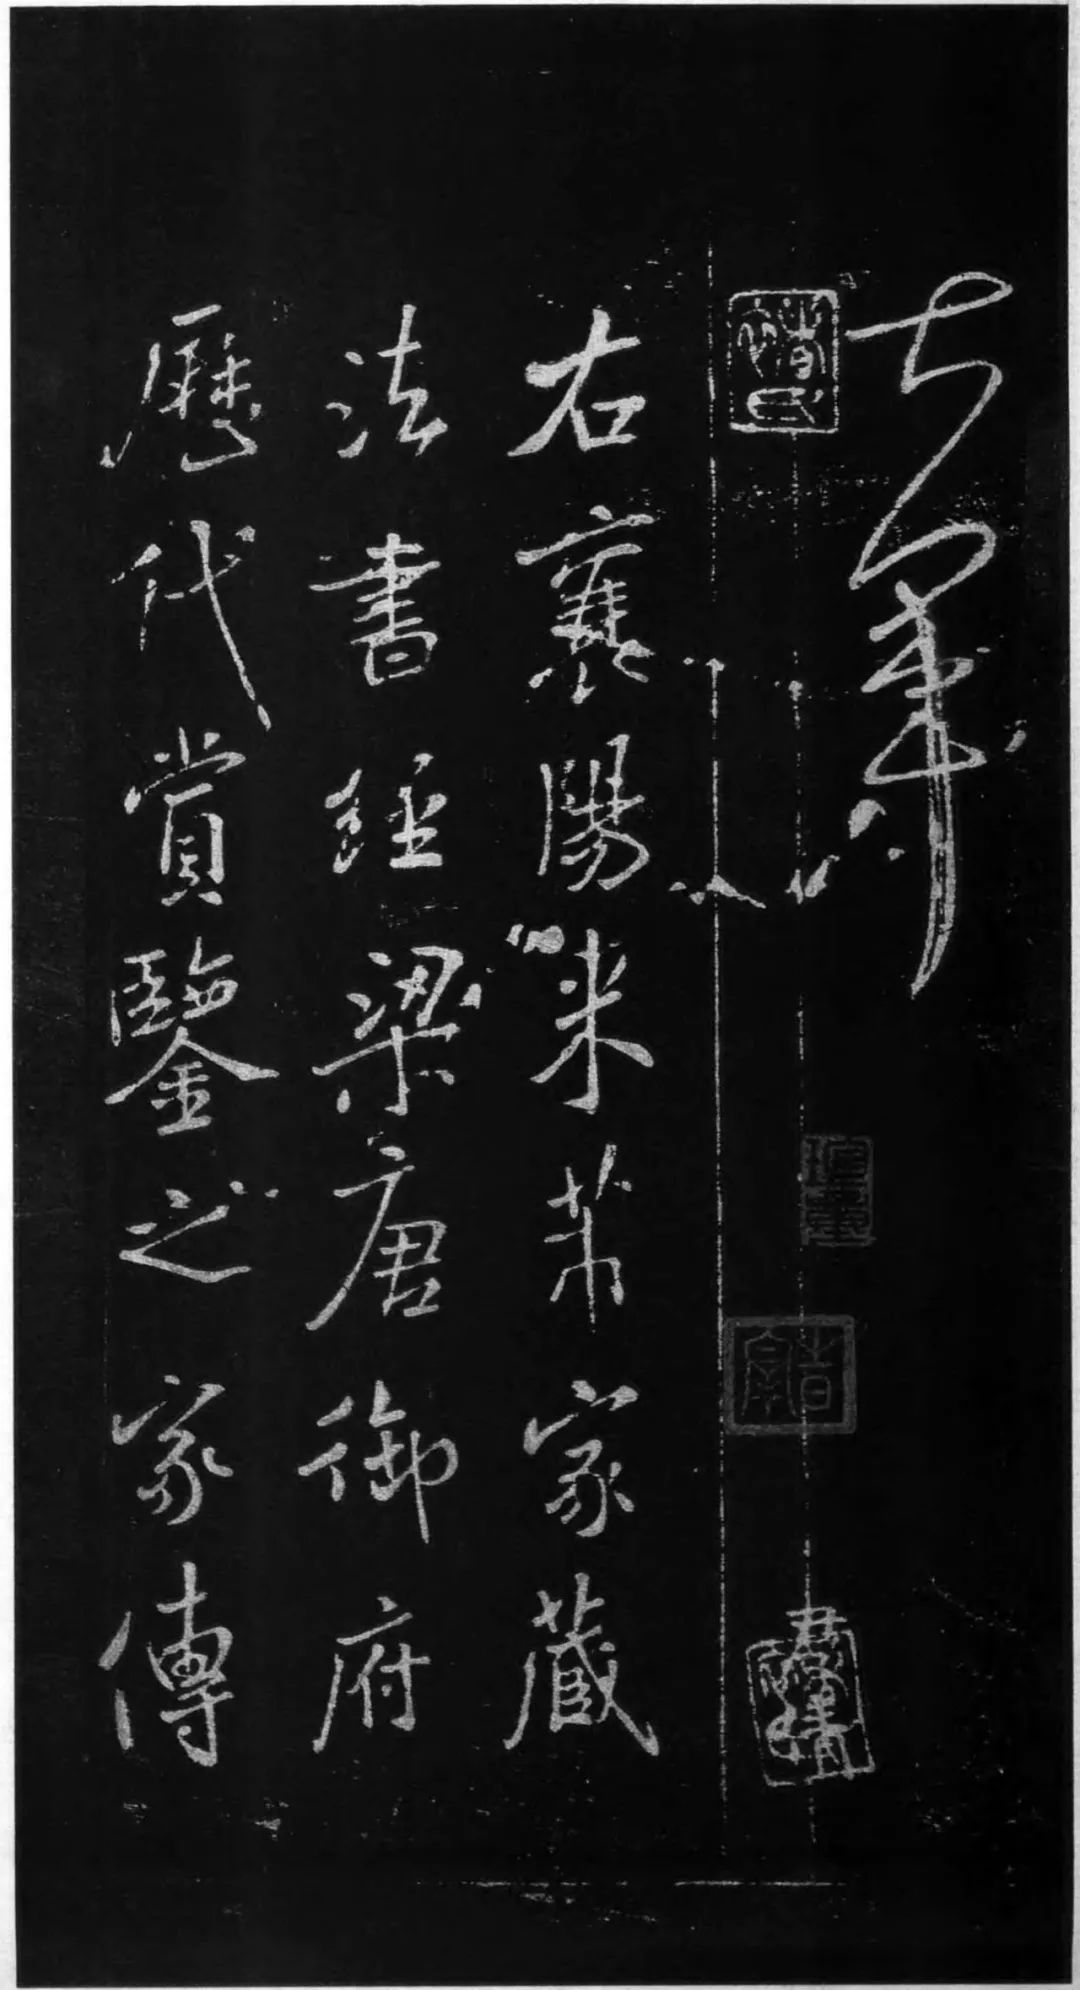 大軍
右襄陽米芾家藏
法書經梁唐御府
歷代賞鑒之家傳